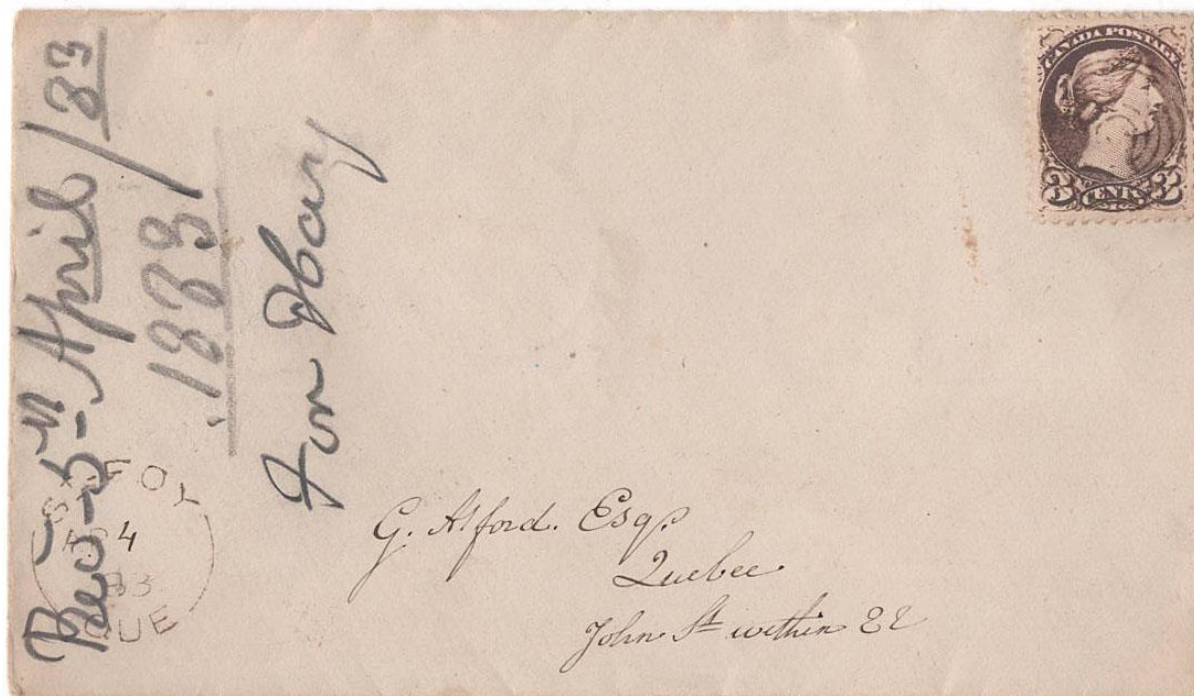 CANADA POSTAGE
3 CENTS 3
Rec'd 5th April / 83
1883
For Hay
STE FOY
AP 4
83
QUE
G. Alford. Esq.
Quebec
John St within 22